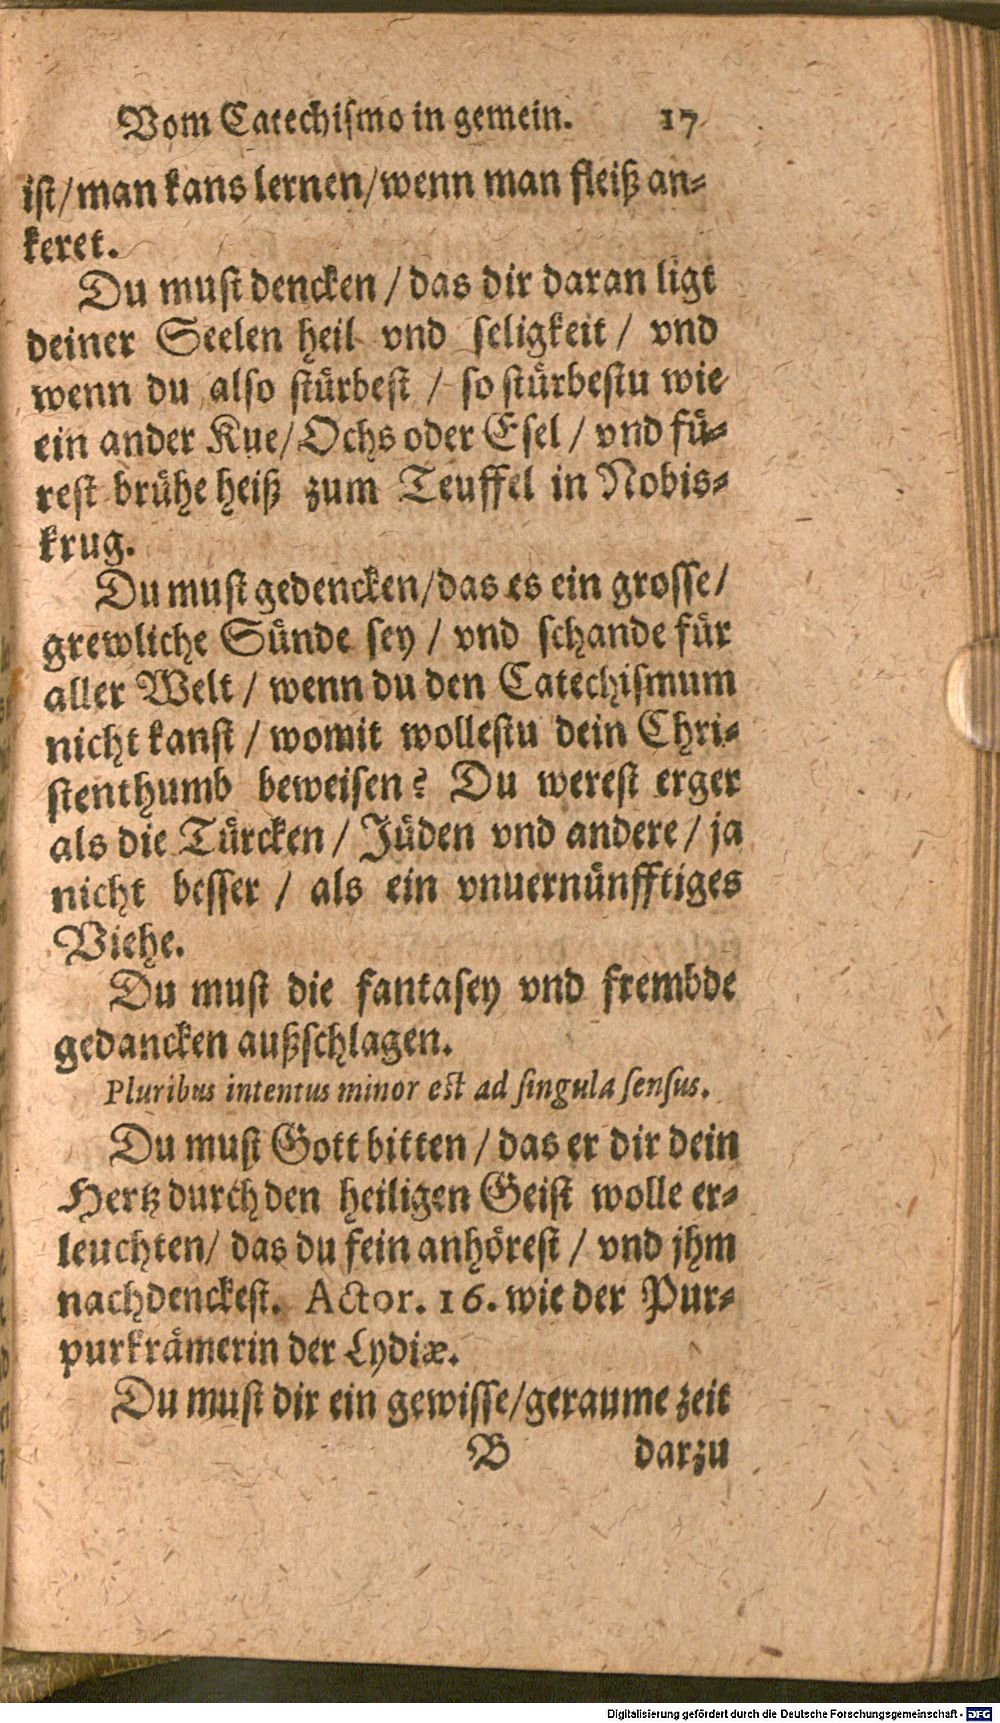 Vom Catechismo in gemein. 17
ist/ man kans lernen/ wenn man fleiß an-
keret.
Du must dencken / das dir daran ligt
deiner Seelen heil vnd seligkeit / vnd
wenn du also stürbest / so stürbestu wie
ein ander Kue/ Ochs oder Esel / vnd fü-
rest brühe heiß zum Teuffel in Nobis-
krug.
Du must gedencken/ das es ein grosse/
grewliche Sünde sey / vnd schande für
aller Welt / wenn du den Catechismum
nicht kanst / womit wollestu dein Chri-
stenthumb beweisen? Du werest erger
als die Türcken / Jüden vnd andere / ja
nicht besser / als ein vnuernünfftiges
Viehe.
Du must die fantasey vnd frembde
gedancken außschlagen.
Pluribus intentus minor est ad singula sensus.
Du must Gott bitten / das er dir dein
Hertz durch den heiligen Geist wolle er-
leuchten/ das du fein anhörest / vnd jhm
nachdenckest. Actor. 16. wie der Pur-
purkrämerin der Lydiæ.
Du must dir ein gewisse/ geraume zeit
B darzu
Digitalisierung gefördert durch die Deutsche Forschungsgemeinschaft - DFG